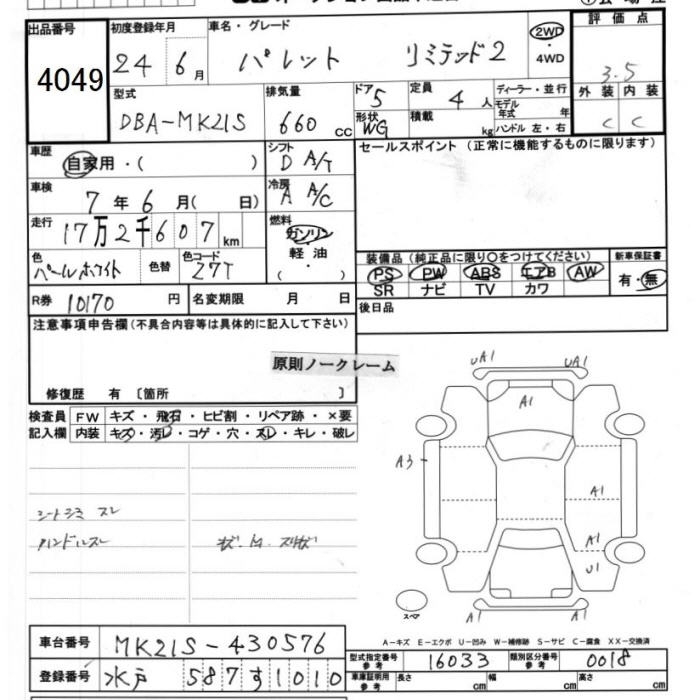 出品番号
4049
初度登録年月
24 6月
車名・グレード
パレット リミテッド2
2WD
・
4WD
評価点
3.5
外装 内装
C C
型式
DBA-MK21S
排気量
660 cc
ドア
5
形状
WG
定員
4人
積載
kg
ディーラー・並行
モデル
年式 年
ハンドル 左・右
車歴
自家用・( )
シフト
D A/T
車検
7年6月( 日)
冷房
A A/C
走行
17万2千607km
燃料
ガソリン
軽油
( ・ )
色
パールホワイト
色替
色コード
Z7T
R券 10170 円
名変期限 月 日
セールスポイント(正常に機能するものに限ります)
装備品(純正品に限り〇をつけてください)
PS PW ABS エアB AW
SR ナビ TV カワ
新車保証書
有・無
後日品
注意事項申告欄(不具合内容等は具体的に記入して下さい)
原則ノークレーム
修復歴 有〔箇所 〕
検査員
記入欄
FW キズ・飛石・ヒビ割・リペア跡・×要
内装 キズ・汚レ・コゲ・穴・スレ・キレ・破レ
シートシミ スレ
ハンドルスレ
UA1 UA1
A1
A3
A1
A1
U1
A1 A1
スペア
A-キズ E-エクボ U-凹み W-補修跡 S-サビ C-腐食 XX-交換済
車台番号 MK21S-430576
登録番号 水戸 587す1010
型式指定番号
参考
16033
類別区分番号
参考
0018
車庫証明用
参考
長さ cm 幅 cm 高さ cm